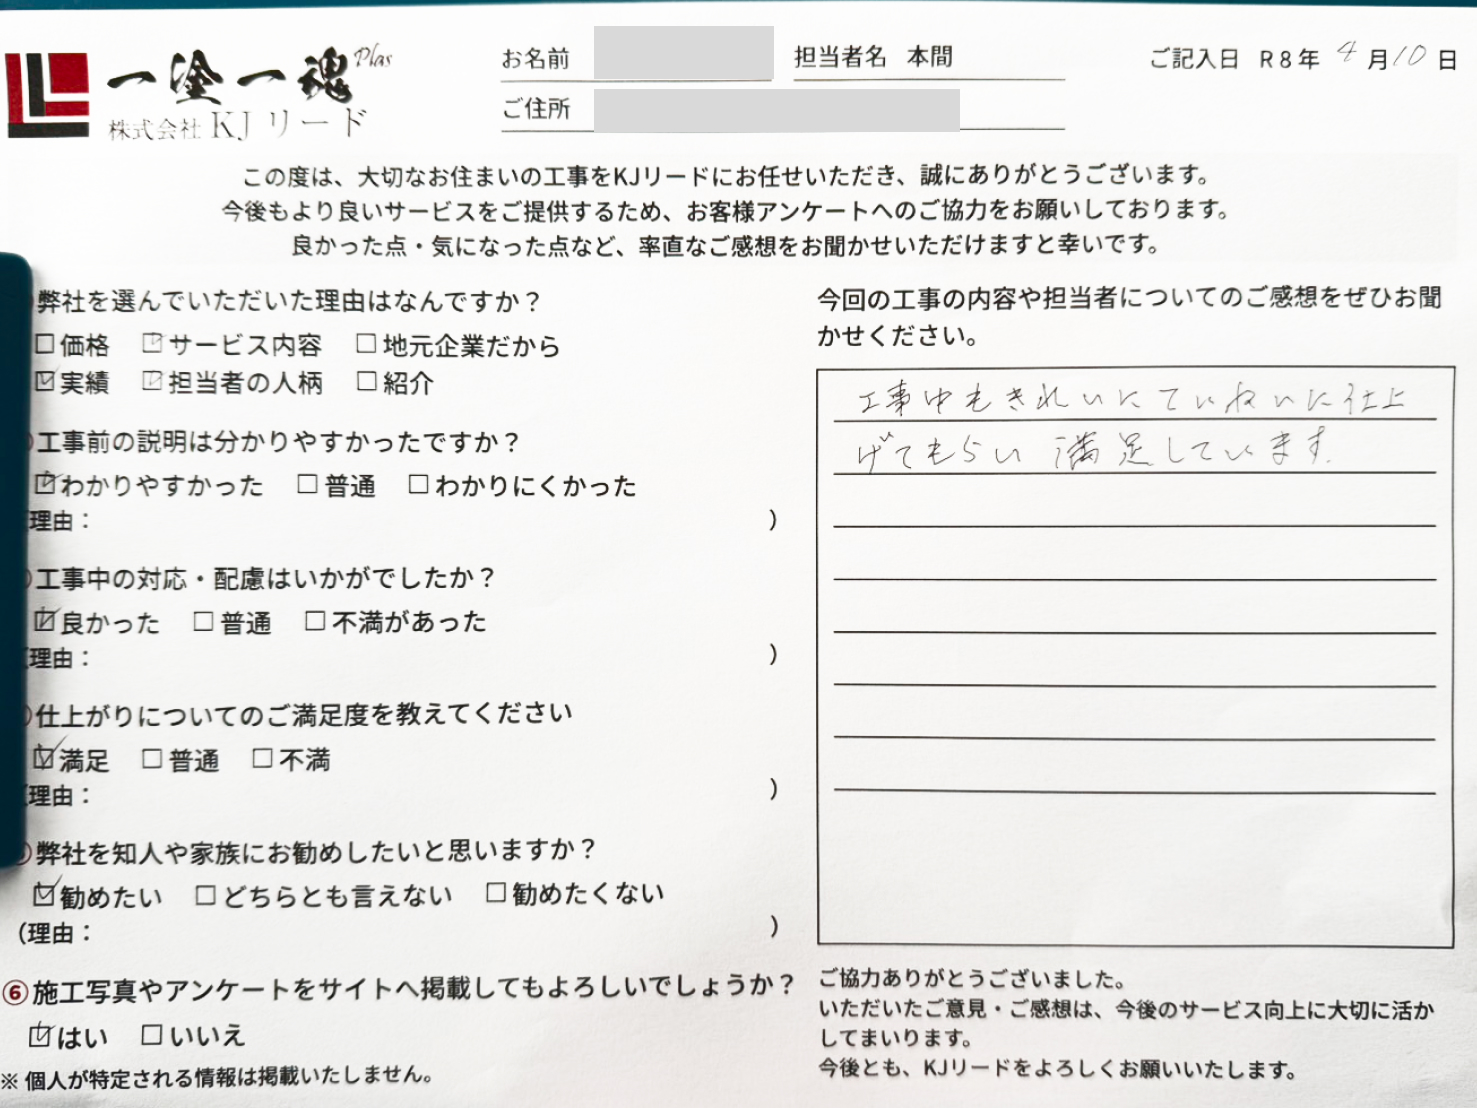 一塗一魂 Plas
株式会社 KJ リード
お名前
担当者名 本間
ご記入日 R8年 4月10日
ご住所
この度は、大切なお住まいの工事をKJリードにお任せいただき、誠にありがとうございます。
今後もより良いサービスをご提供するため、お客様アンケートへのご協力をお願いしております。
良かった点・気になった点など、率直なご感想をお聞かせいただけますと幸いです。
弊社を選んでいただいた理由はなんですか？
☐価格 ☑サービス内容 ☐地元企業だから
☑実績 ☑担当者の人柄 ☐紹介
工事前の説明は分かりやすかったですか？
☑わかりやすかった ☐普通 ☐わかりにくかった
理由： ）
工事中の対応・配慮はいかがでしたか？
☑良かった ☐普通 ☐不満があった
理由： ）
仕上がりについてのご満足度を教えてください
☑満足 ☐普通 ☐不満
理由： ）
弊社を知人や家族にお勧めしたいと思いますか？
☑勧めたい ☐どちらとも言えない ☐勧めたくない
（理由： ）
⑥施工写真やアンケートをサイトへ掲載してもよろしいでしょうか？
☑はい ☐いいえ
※ 個人が特定される情報は掲載いたしません。
今回の工事の内容や担当者についてのご感想をぜひお聞
かせください。
工事中もきれいにていねいに仕上
げてもらい 満足しています。
ご協力ありがとうございました。
いただいたご意見・ご感想は、今後のサービス向上に大切に活か
してまいります。
今後とも、KJリードをよろしくお願いいたします。